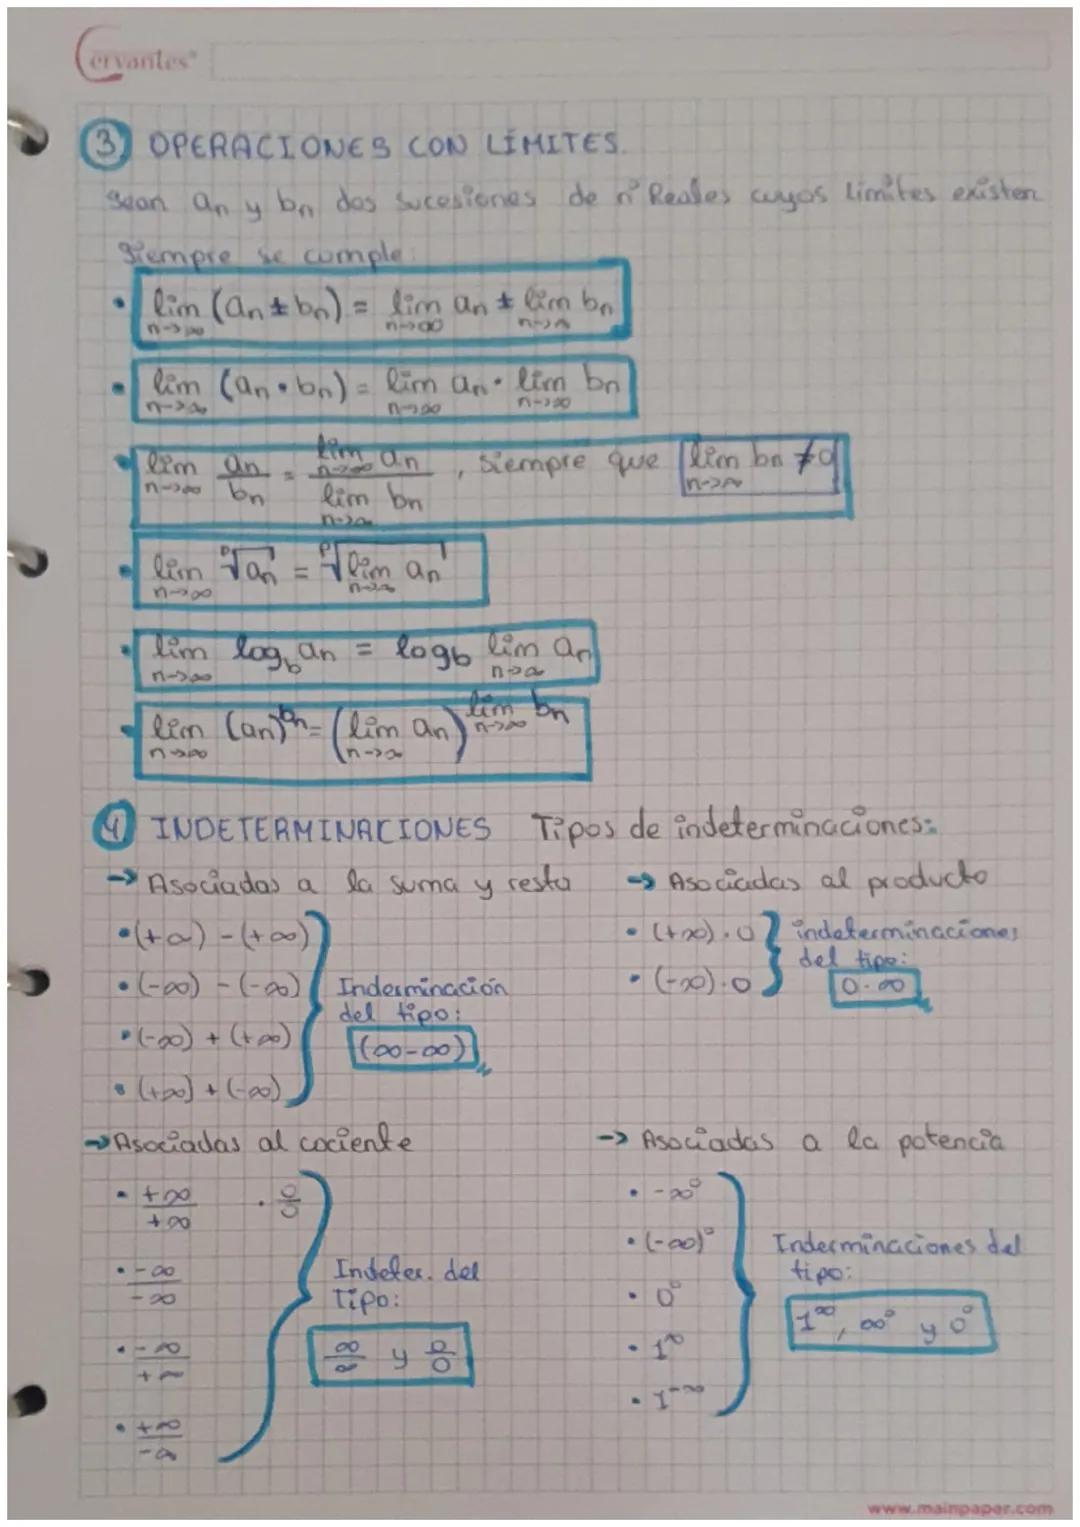 Cervantes
3 OPERACIONES CON LÍMITES.
Sean an y bn dos sucesiones de nº Reales cuyos límites existen
Siempre se cumple:
• lim n→∞ (an ± bn) = lim n→∞ an ± lim n→∞ bn
• lim n→∞ (an • bn) = lim n→∞ an • lim n→∞ bn
• lim n→∞ an/bn = lim n→∞ an / lim n→∞ bn , siempre que lim n→∞ bn ≠ 0
• lim n→∞ ᵖ√an = ᵖ√lim n→∞ an
• lim n→∞ log_b an = log_b lim n→∞ an
• lim n→∞ (an)^bn = (lim n→∞ an)^lim n→∞ bn
4 INDETERMINACIONES Tipos de indeterminaciones:
→ Asociadas a la suma y resta
• (+∞) - (+∞)
• (-∞) - (-∞)
• (-∞) + (+∞)
• (+∞) + (-∞)
Inderminación
del tipo:
(∞-∞)
→ Asociadas al producto
• (+∞) . 0
• (-∞) . 0
indeterminaciones
del tipo:
0 . ∞
→ Asociadas al cociente
• +∞/+∞ . 0/0
• -∞/-∞
• -∞/+∞
• +∞/-∞
Indeter. del
Tipo:
∞/∞ y 0/0
→ Asociadas a la potencia
• -∞⁰
• (-∞)⁰
• 0⁰
• 1^∞
• 1^-∞
Inderminaciones del
tipo:
1^∞, ∞⁰ y 0⁰
www.mainpaper.com